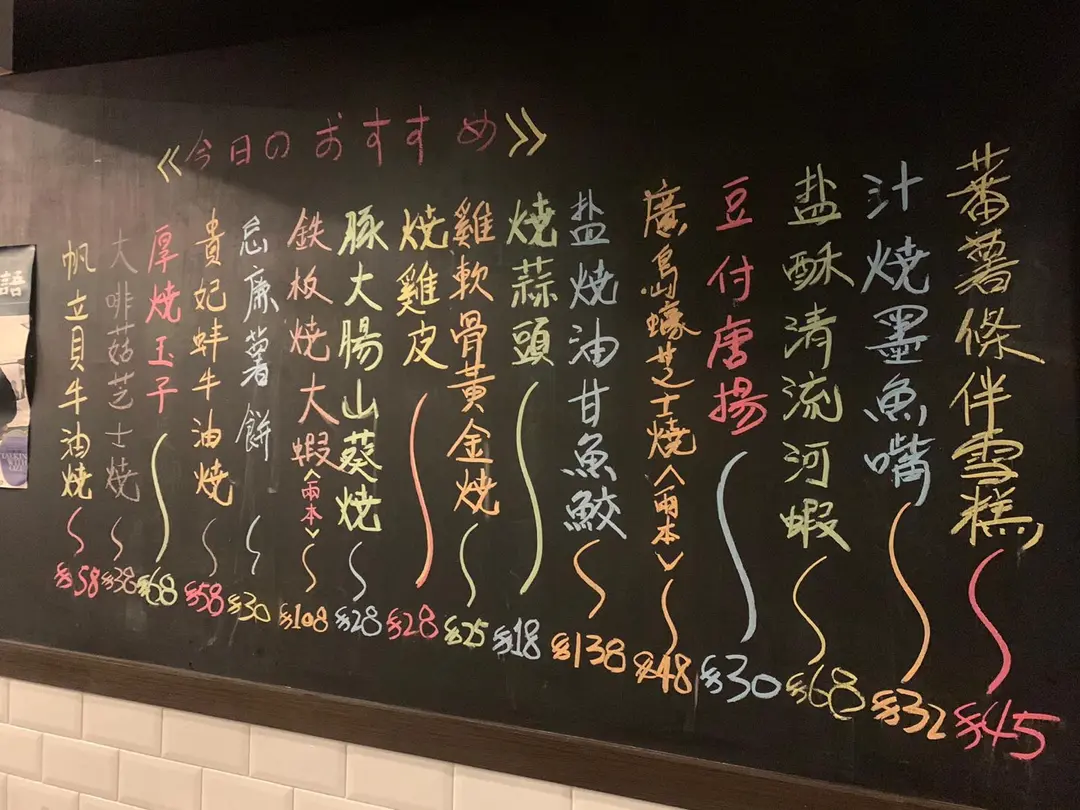 《今日のおすすめ》
蕃薯條伴雪糕 $45
汁燒墨魚嘴 $32
盐酥清流河蝦 $68
豆付唐揚 $30
廣島蠔芝士燒〈兩本〉 $48
盐燒油甘魚鮫 $138
燒蒜頭 $18
雞軟骨黃金燒 $25
燒雞皮 $28
豚大腸山葵燒 $28
鉄板燒大蝦〈兩本〉 $108
忌廉薯餅 $30
貴妃蚌牛油燒 $58
厚燒玉子 $68
大啡菇芝士燒 $38
帆立貝牛油燒 $58
語